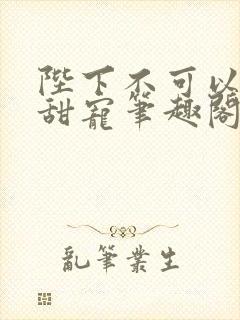 陛下不可以
甜寵筆趣閣
亂筆叢生